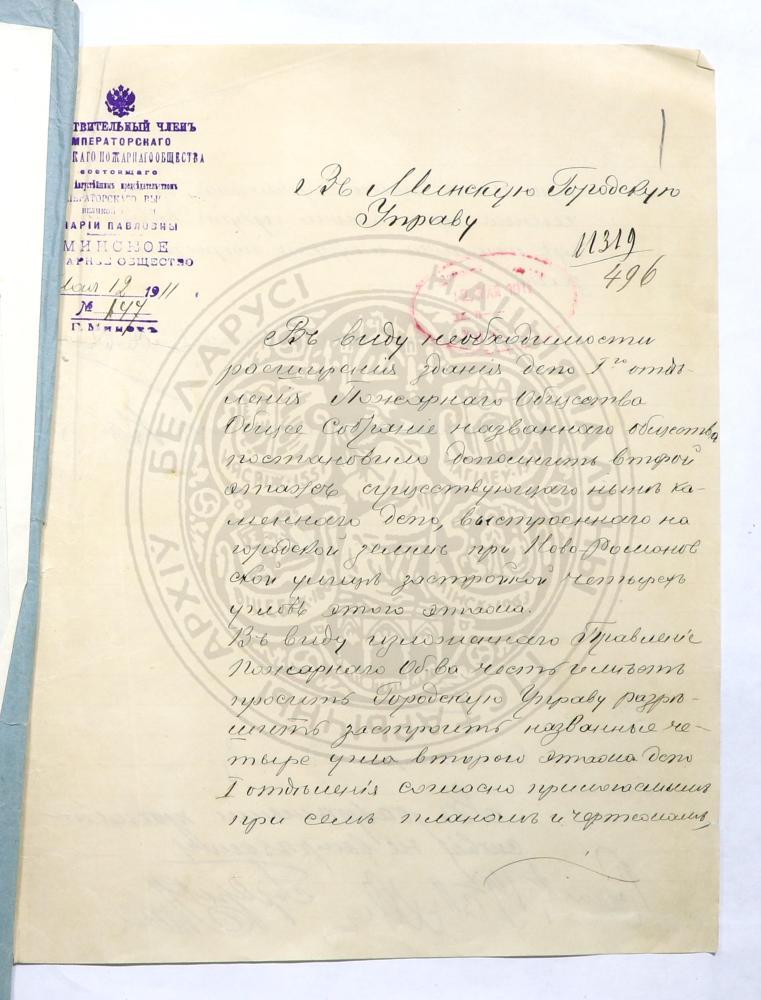 ТВИТЕЛЬНЫЙ ЧЛЕНЪ
МПЕРАТОРСКАГО
КАГО ПОЖАРНАГО ОБЩЕСТВА
состоящаго
Августѣйшимъ предсѣдательствомъ
ПЕРАТОРСКАГО ВЫ
ВЕЛИКОЙ
МАРІИ ПАВЛОВНЫ
МИНСКОЕ
АРНОЕ ОБЩЕСТВО
Мая 12 1911
№ 147
Г. Минскъ
Въ Минскую Городскую
Управу
11319
496
Въ виду необходимости
расширенія зданія депо I го отдѣ-
ленія Пожарнаго Общества
Общее Собраніе названнаго общества
постановило дополнить второй
этажъ существующаго нынѣ ка-
меннаго депо, выстроеннаго на
городской землѣ при Ново-Романов
ской улицѣ застройкой четырехъ
угловъ этого этажа.
Въ виду изложеннаго Правленіе
Пожарнаго Об-ва честь имѣетъ
просить Городскую Управу разрѣ-
шить застроить названные че-
тыре угла второго этажа депо
I отдѣленія согласно прилагаемымъ
при семъ планамъ и чертежамъ,
АРХІЎ БЕЛАРУСІ